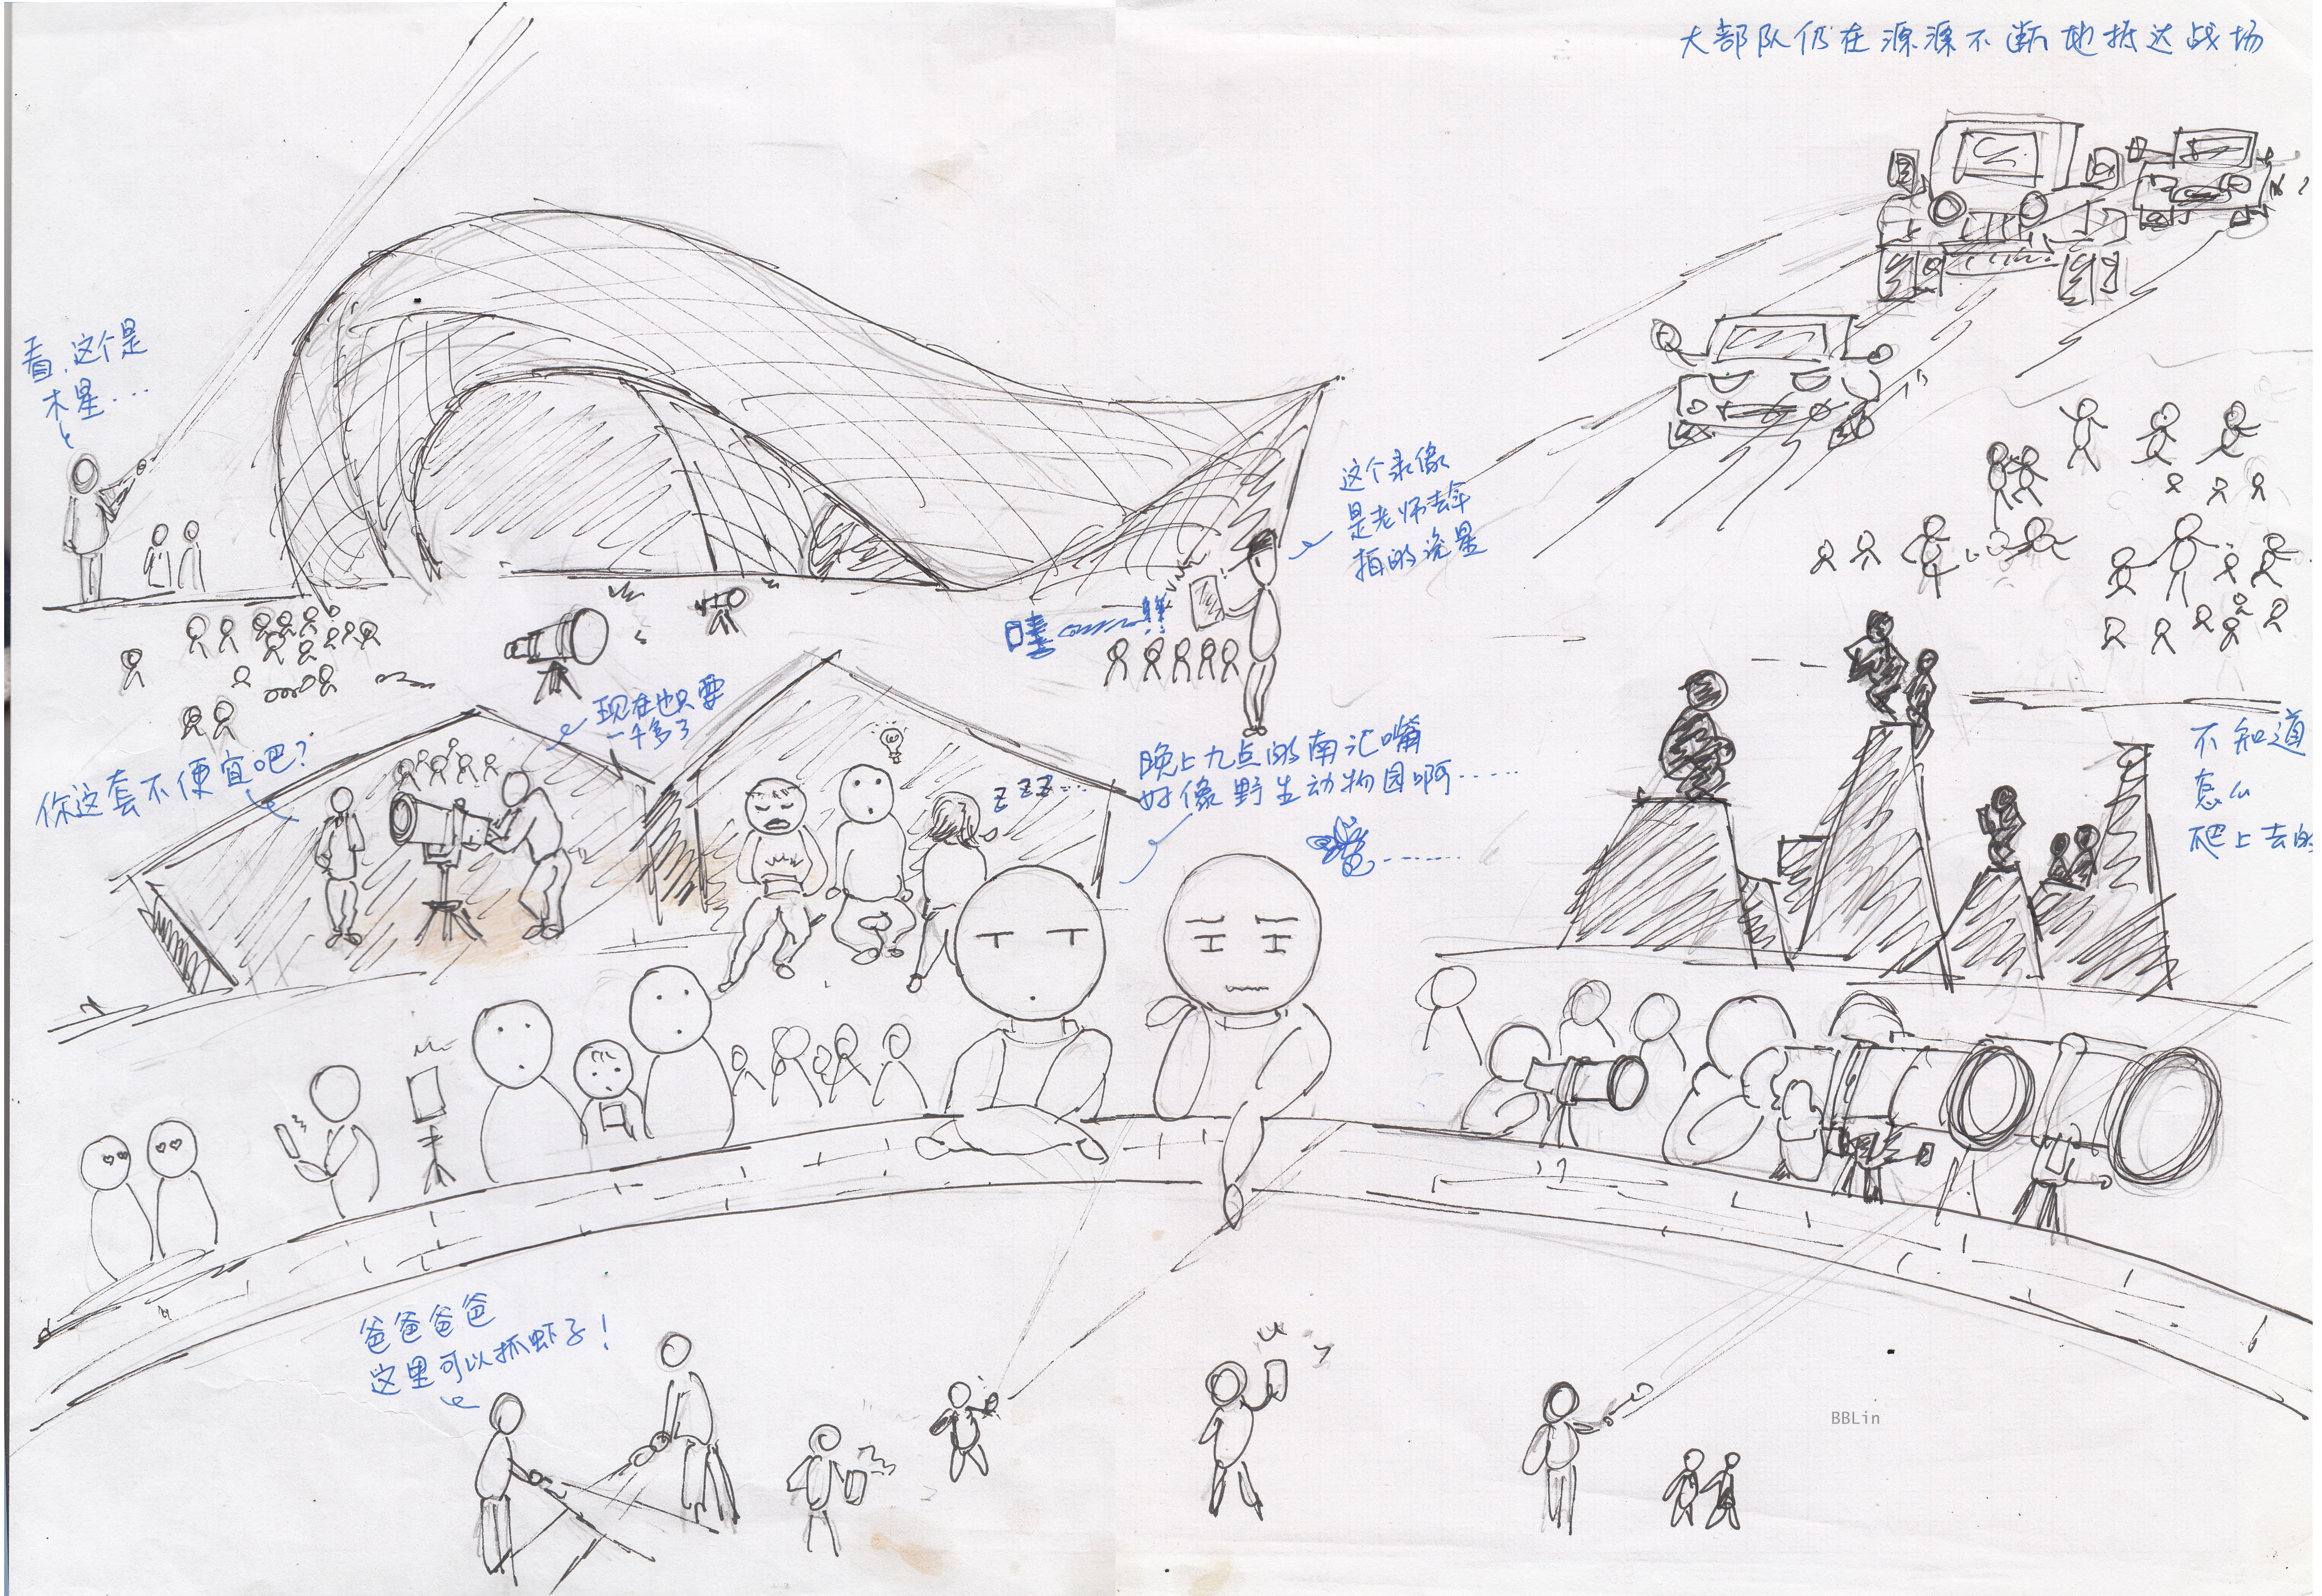 大部队仍在源源不断地抵达战场
看,这个是
木星...
这个录像
是老师去年
拍的流星
现在也只要
一千多了
你这套不便宜吧?
z z z...
晚上九点的南汇嘴
好像野生动物园啊......
不知道
怎么
爬上去的
爸爸爸爸
这里可以抓虾子!
BBLin